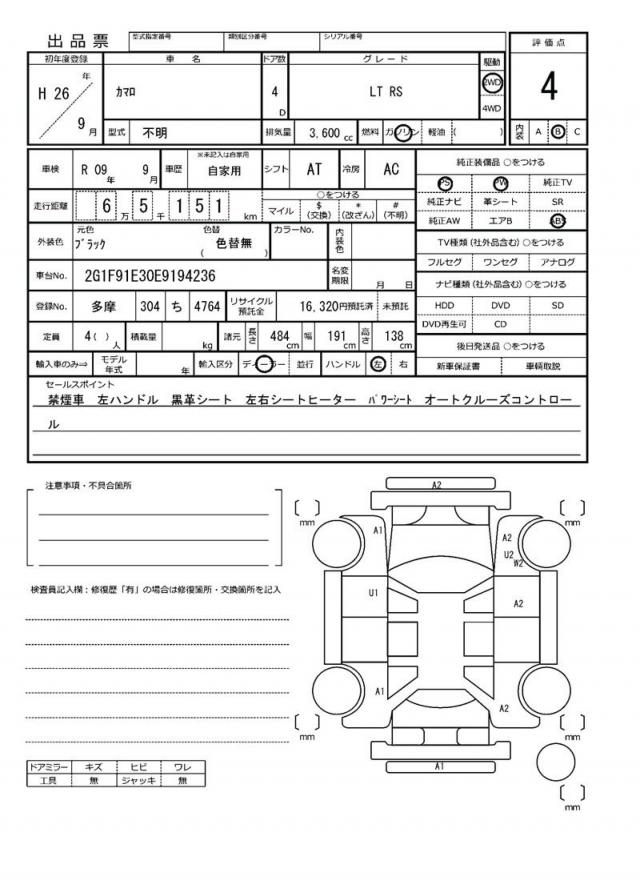 出品票
型式指定番号 類別区分番号 シリアル番号
評価点
4
内装 A B C
初年度登録 車名 ドア数 グレード 駆動
H 26 年 9 月
カマロ 4 D LT RS 2WD 4WD
型式 不明 排気量 3,600 cc 燃料 ガソリン 軽油 ( )
車検 R 09 年 9 月 車歴 ※未記入は自家用 自家用 シフト AT 冷房 AC
走行距離 6 万 5 千 1 5 1 km ○をつける マイル $ (交換) * (改ざん) # (不明)
外装色 元色 ブラック 色替 ( 色替無 ) カラーNo. 内装色
車台No. 2G1F91E30E9194236 名変期限 月 日
登録No. 多摩 304 ち 4764 リサイクル預託金 16,320円預託済 未預託
定員 4 ( ) 人 積載量 kg 諸元 長さ 484 cm 幅 191 cm 高さ 138 cm
輸入車のみ⇒ モデル年式 年 輸入区分 ディーラー 並行 ハンドル 左 右
純正装備品 ○をつける
PS PW 純正TV
純正ナビ 革シート SR
純正AW エアB ABS
TV種類 (社外品含む) ○をつける
フルセグ ワンセグ アナログ
ナビ種類 (社外品含む) ○をつける
HDD DVD SD
DVD再生可 CD
後日発送品 ○をつける
新車保証書 車輌取説
セールスポイント
禁煙車 左ハンドル 黒革シート 左右シートヒーター パワーシート オートクルーズコントロー
ル
注意事項・不具合箇所
検査員記入欄：修復歴「有」の場合は修復箇所・交換箇所を記入
ドアミラー キズ ヒビ ワレ
工具 無 ジャッキ 無
A2
mm mm
A1 A2
U2
W2
U1 A2
A1 A2
mm mm
A1
mm